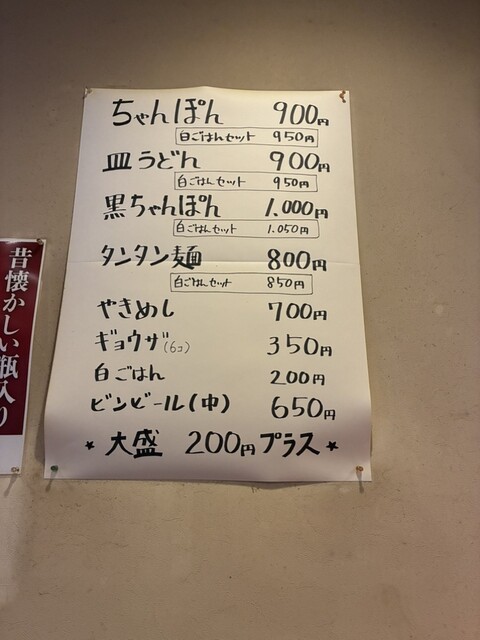 ちゃんぽん 900円
白ごはんセット 950円
皿うどん 900円
白ごはんセット 950円
黒ちゃんぽん 1.000円
白ごはんセット 1.050円
タンタン麺 800円
白ごはんセット 850円
やきめし 700円
ギョウザ(6コ) 350円
白ごはん 200円
ビンビール(中) 650円
★ 大盛 200円プラス ★
昔懐かしい瓶入り